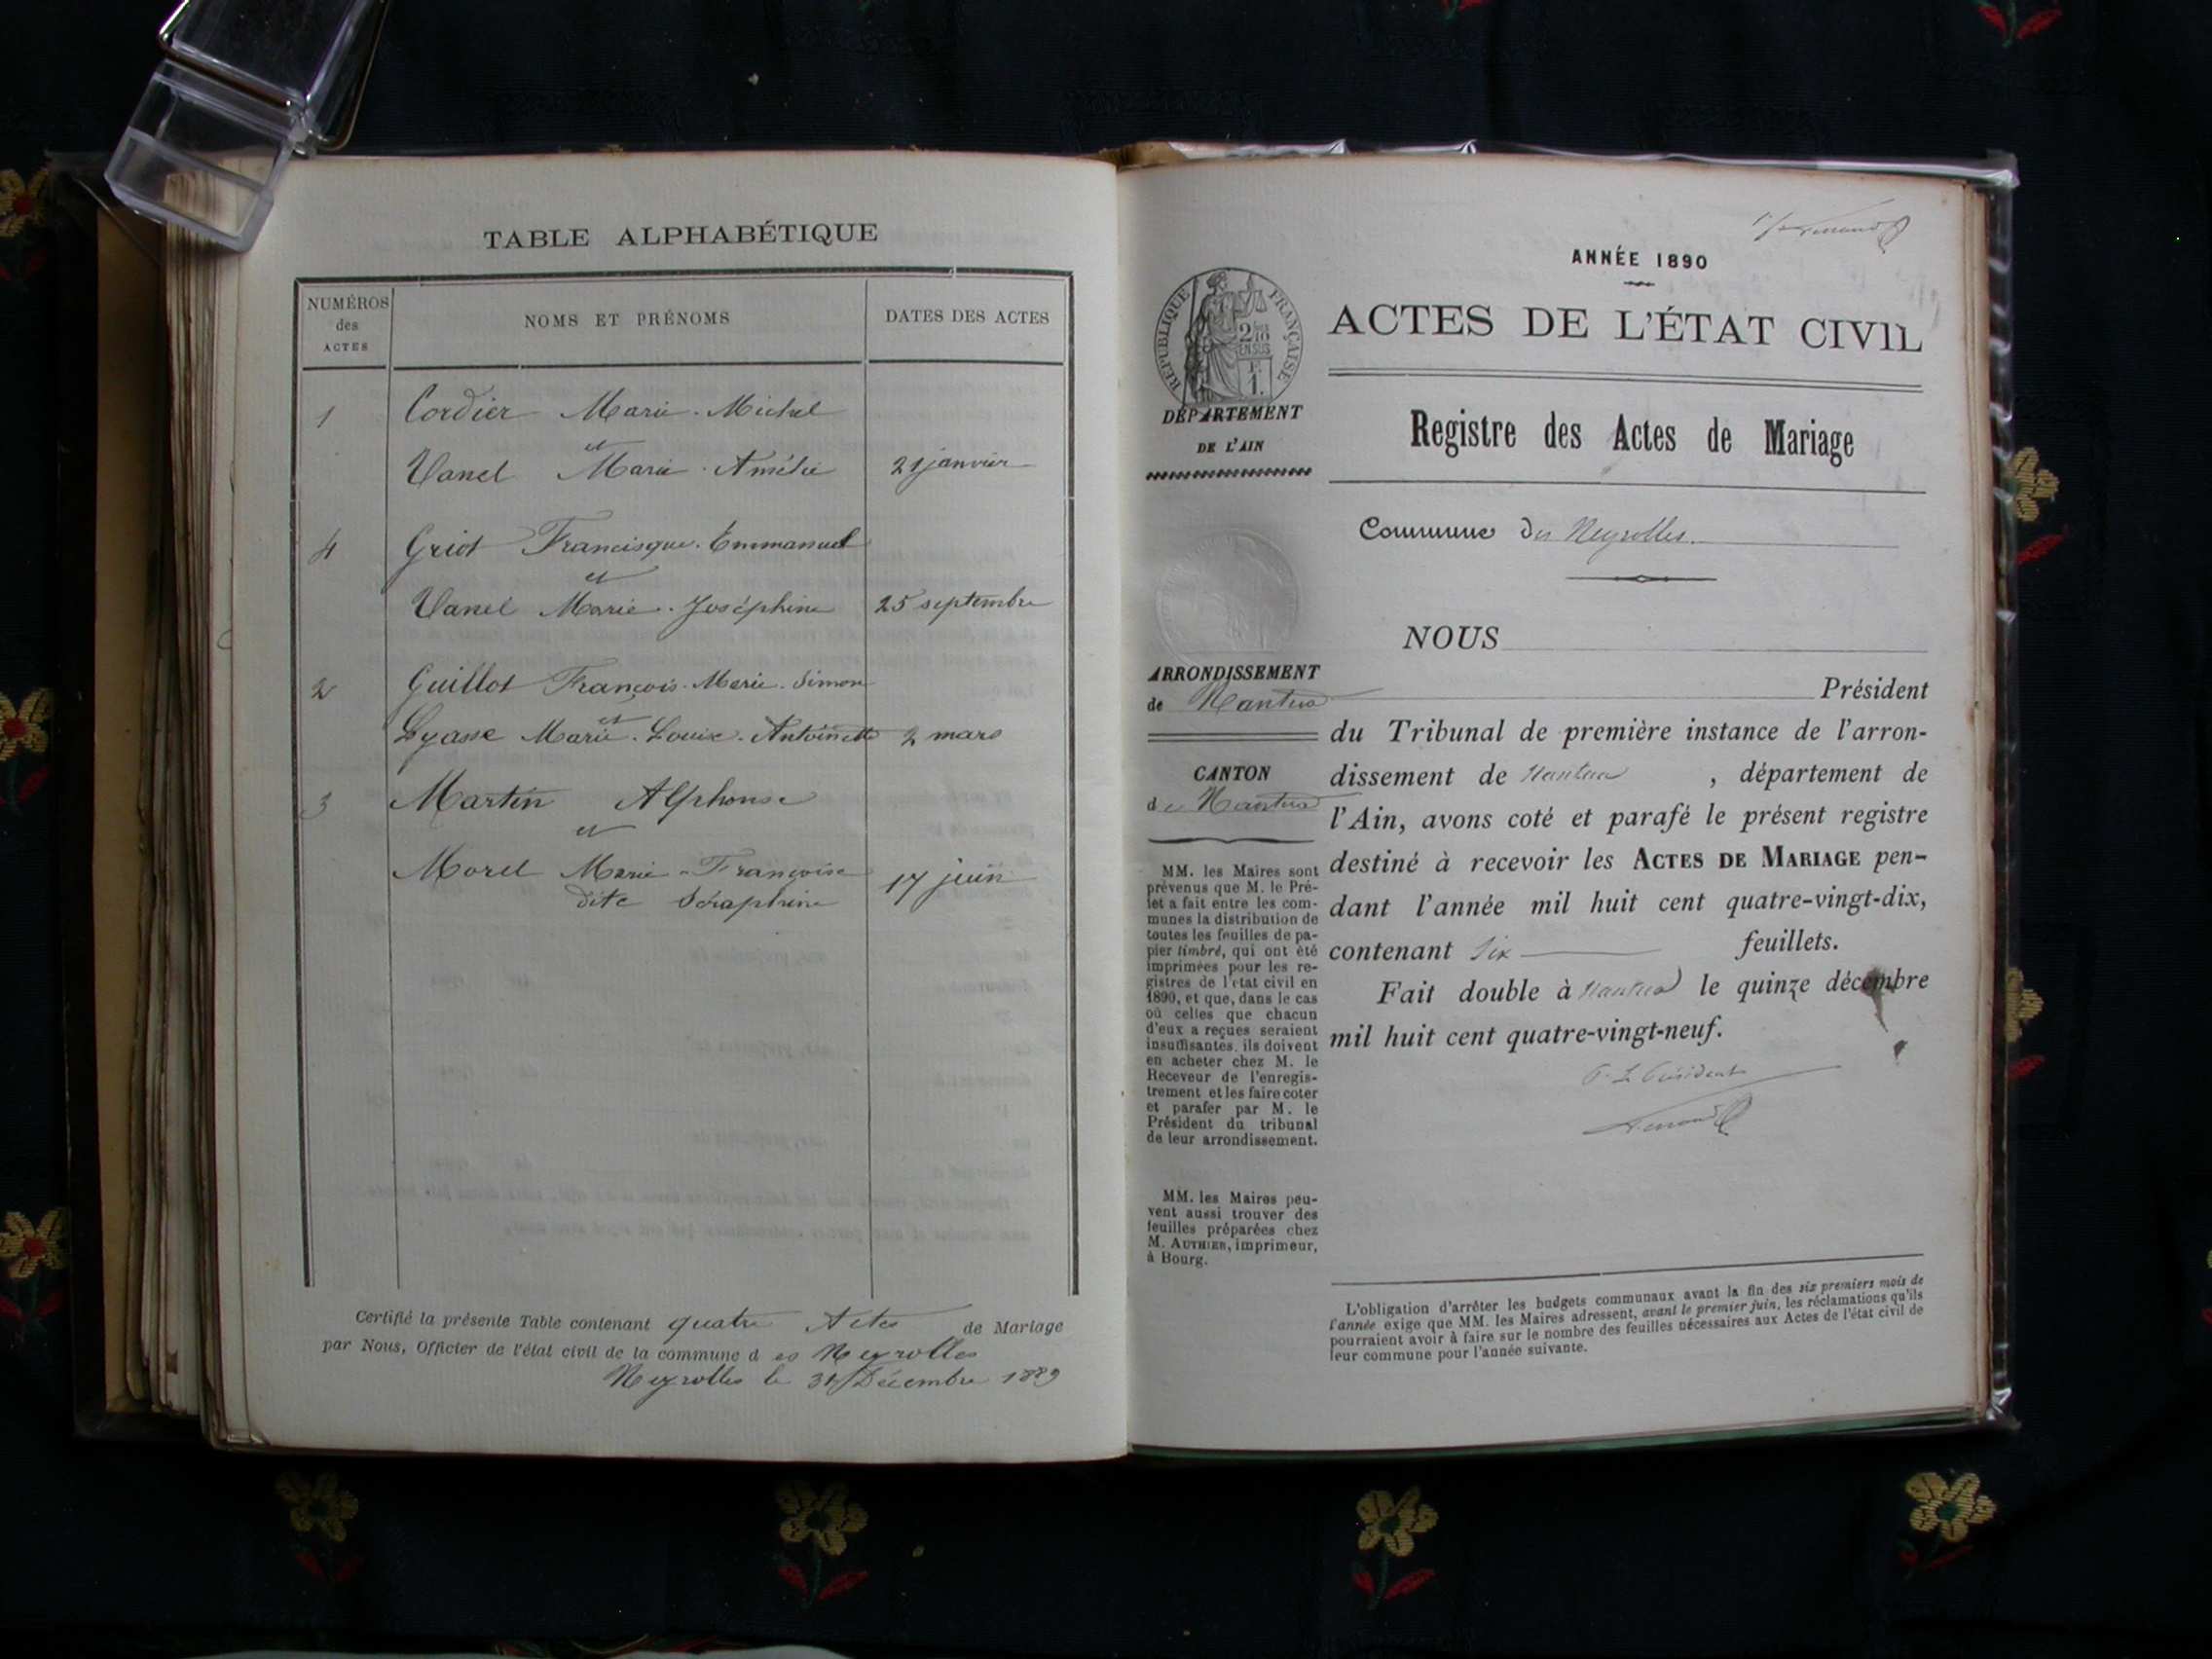 TABLE ALPHABÉTIQUE
NUMÉROS
des
ACTES
NOMS ET PRÉNOMS
DATES DES ACTES
1 Cordier Marie-Michel
et
Vanel Marie-Amélie 21 janvier
4 Griot Francisque-Emmanuel
et
Vanel Marie-Joséphine 25 septembre
2 Guillot François-Marie-Simon
et
Lyasse Marie-Louise-Antoinette 2 mars
3 Martin Alphonse
et
Morel Marie-Françoise 17 juin
dite Séraphine
Certifié la présente Table contenant quatre Actes de Mariage
par Nous, Officier de l'état civil de la commune des Neyrolles
Neyrolles le 31 Décembre 1889
ANNÉE 1890
ACTES DE L'ÉTAT CIVIL
RÉPUBLIQUE FRANÇAISE
2/10
EN SUS
1 F.
DÉPARTEMENT
DE L'AIN
Registre des Actes de Mariage
Commune des Neyrolles.
ARRONDISSEMENT
de Nantua
CANTON
de Nantua
MM. les Maires sont
prévenus que M. le Pré-
fet a fait entre les com-
munes la distribution de
toutes les feuilles de pa-
pier timbré, qui ont été
imprimées pour les re-
gistres de l'état civil en
1890, et que, dans le cas
où celles que chacun
d'eux a reçues seraient
insuffisantes, ils doivent
en acheter chez M. le
Receveur de l'enregis-
trement et les faire coter
et parafer par M. le
Président du tribunal
de leur arrondissement.
MM. les Maires peu-
vent aussi trouver des
feuilles préparées chez
M. AUTHIER, imprimeur,
à Bourg.
NOUS
Président
du Tribunal de première instance de l'arron-
dissement de Nantua, département de
l'Ain, avons coté et parafé le présent registre
destiné à recevoir les ACTES DE MARIAGE pen-
dant l'année mil huit cent quatre-vingt-dix,
contenant six feuillets.
Fait double à Nantua le quinze décembre
mil huit cent quatre-vingt-neuf.
P. Le Président
L'obligation d'arrêter les budgets communaux avant la fin des six premiers mois de
l'année exige que MM. les Maires adressent, avant le premier juin, les réclamations qu'ils
pourraient avoir à faire sur le nombre des feuilles nécessaires aux Actes de l'état civil de
leur commune pour l'année suivante.